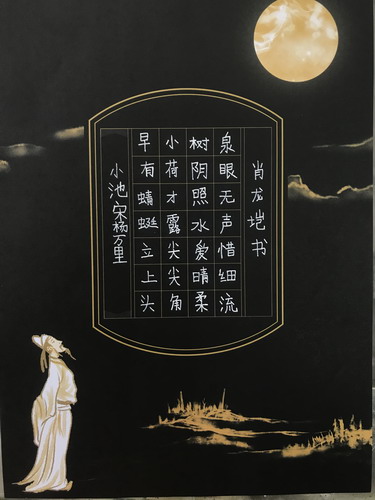 肖龙垲书
泉眼无声惜细流
树阴照水爱晴柔
小荷才露尖尖角
早有蜻蜓立上头
小池宋杨万里